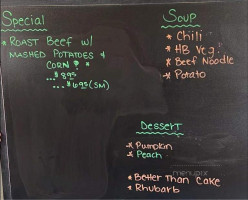 Special
* Roast Beef w/
Mashed Potatoes &
Corn
... $8.95
... $6.95 (Sm)
Soup
* Chili
* HB Veg.
* Beef Noodle
* Potato
Dessert
* Pumpkin
* Peach
* Better Than Cake
* Rhubarb